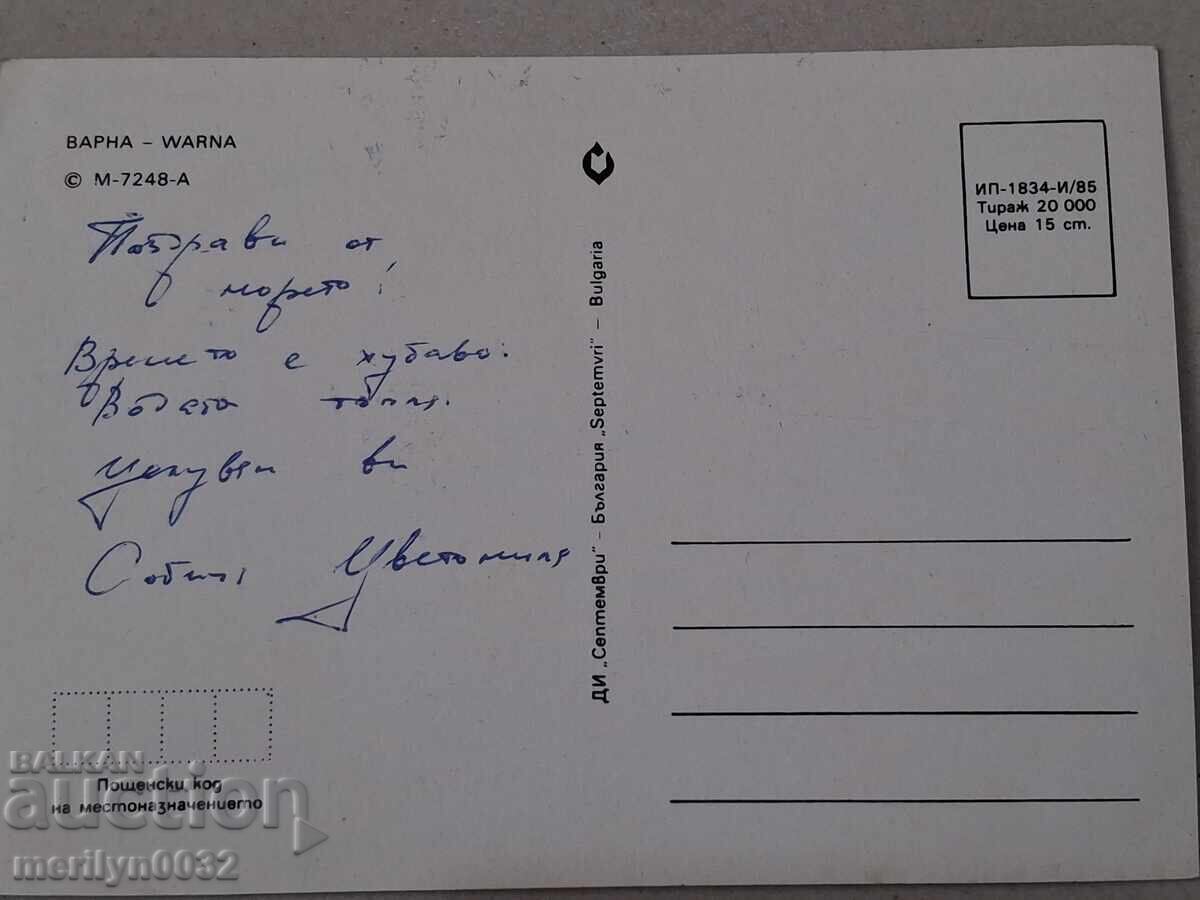 ВАРНА – WARNA
© М-7248-А
Поздрави от
морето!
Времето е хубаво.
Водата топла.
Целувам ви
Цветомила
ДИ „Септември" – България „Septemvri" – Bulgaria
ИП-1834-И/85
Тираж 20 000
Цена 15 ст.
Пощенски код
на местоназначението
BALKAN
auction
merilyn0032